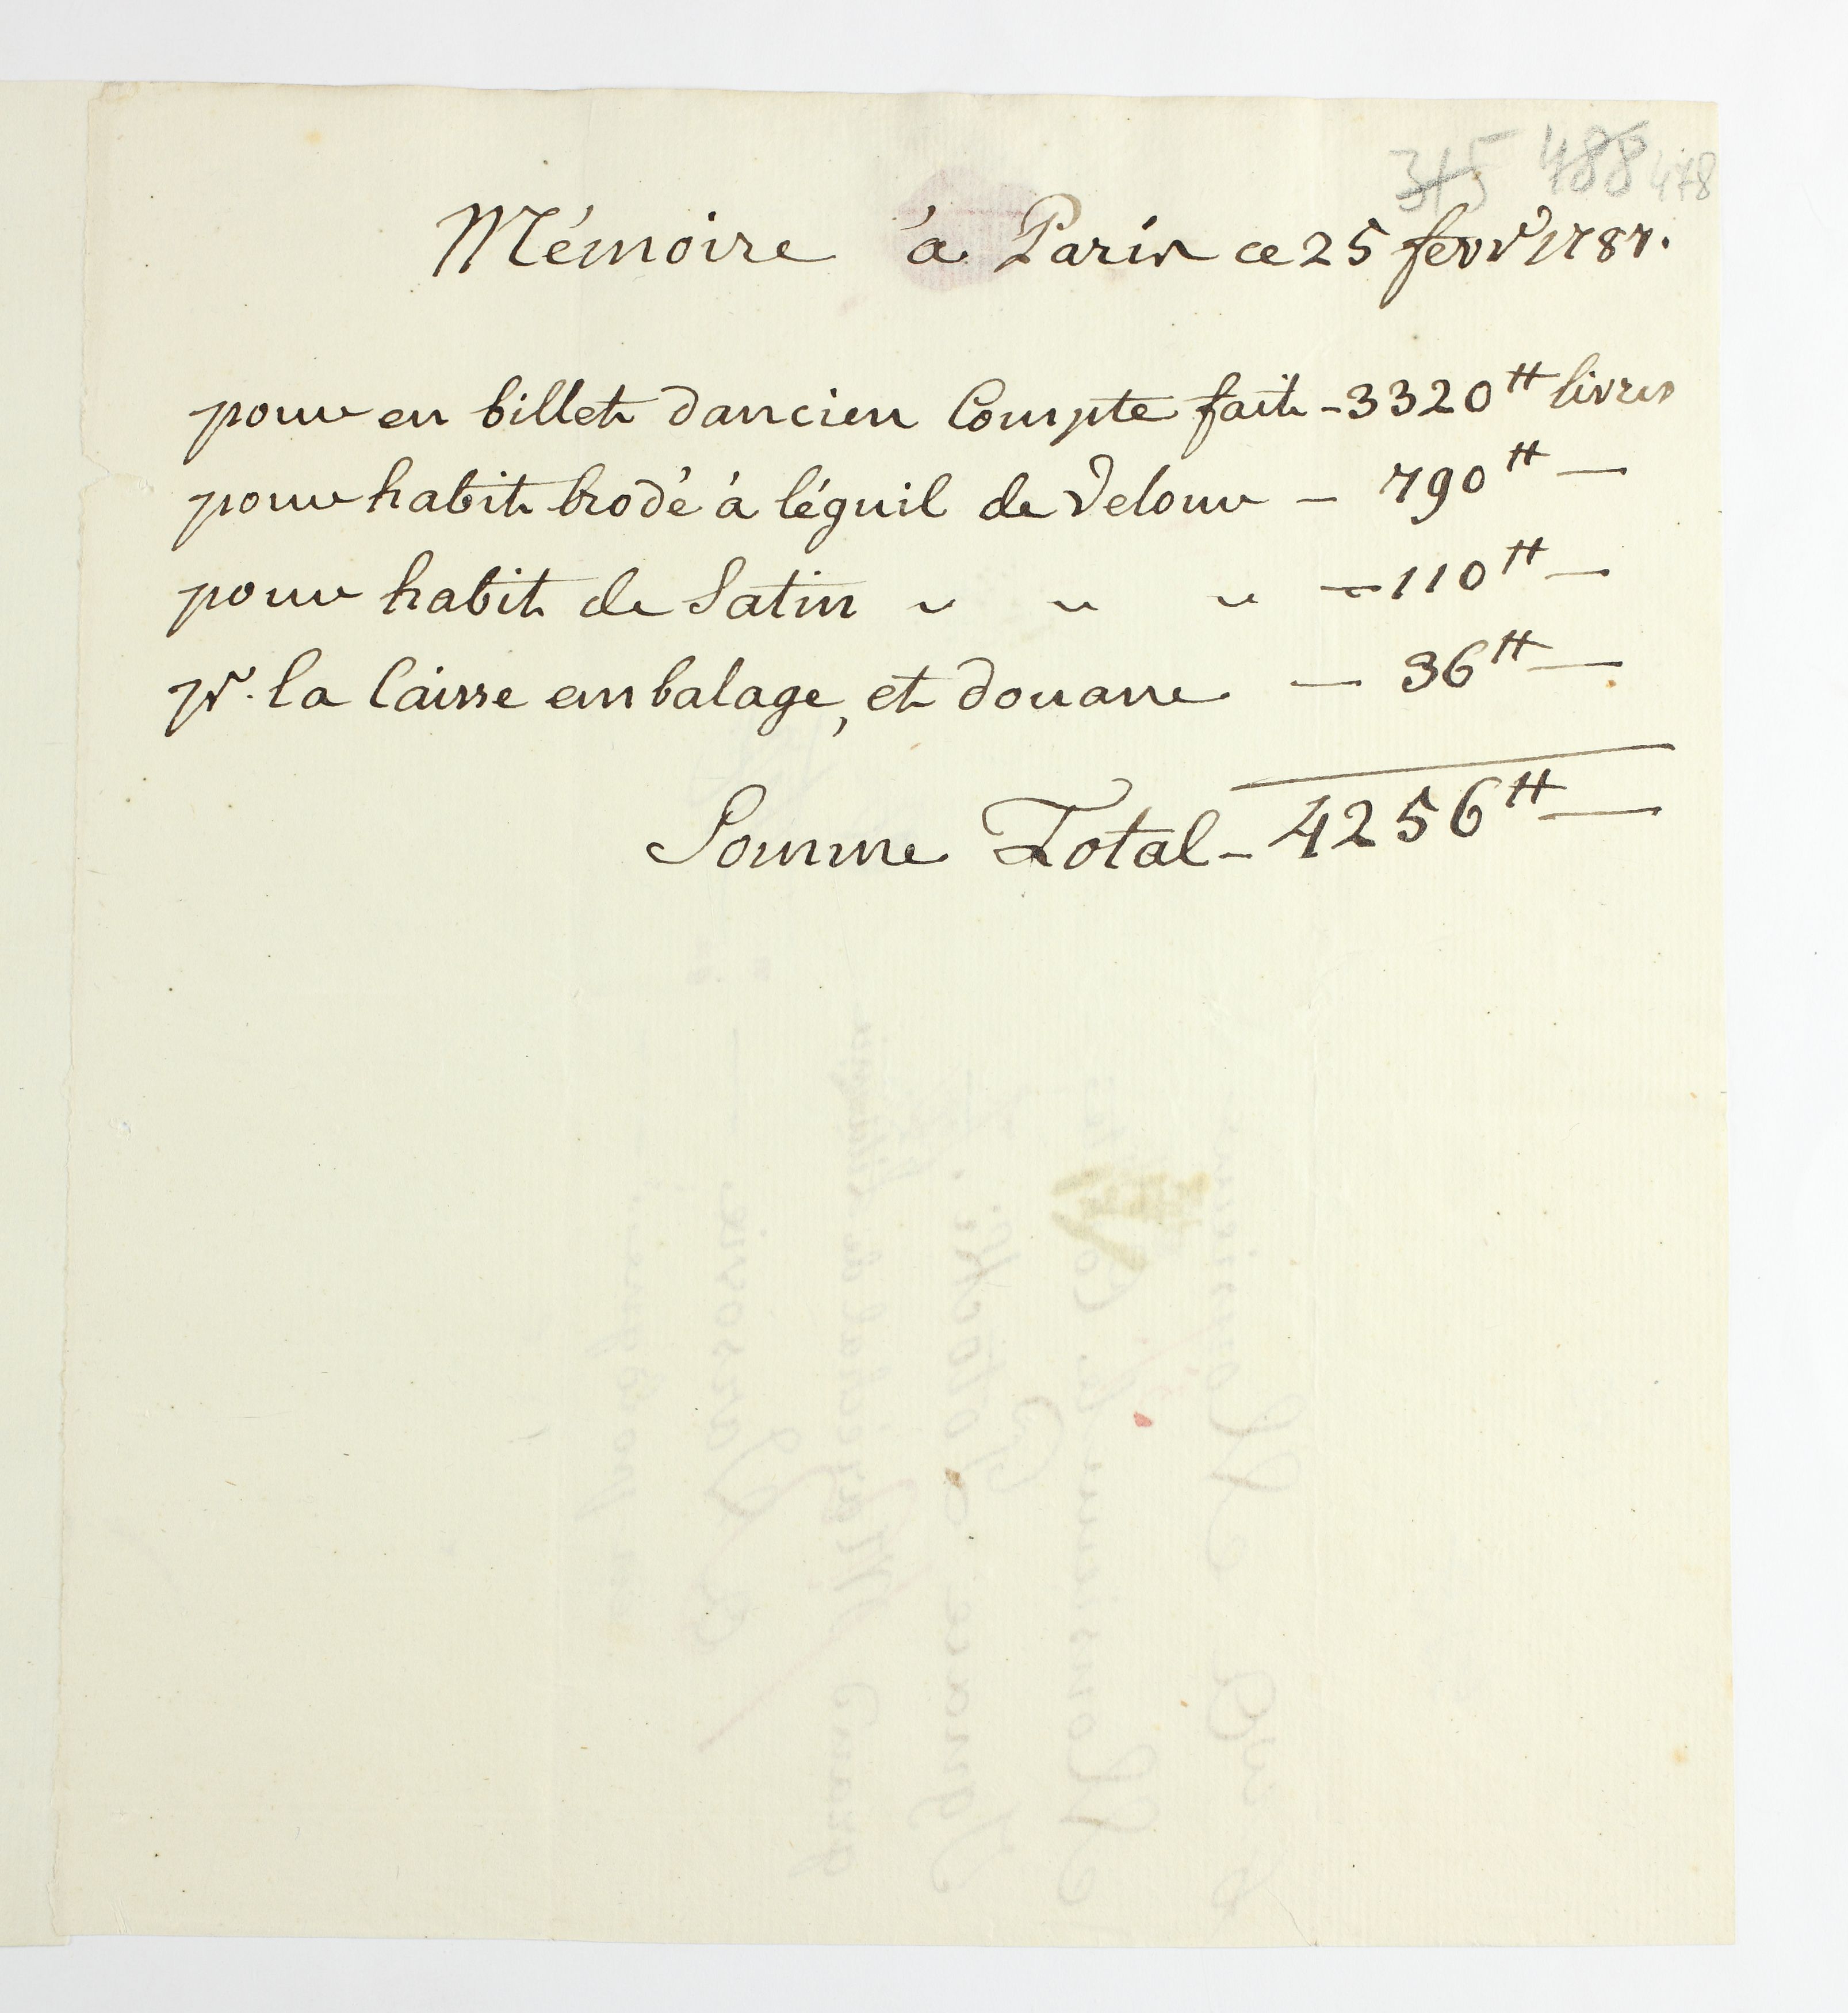 315 488 478
Mémoire à Paris ce 25 fevr 1787.
pour en billet dancien Compte fait - 3320 ₶ livres
pour habit brodé à léguil de Velour - 790 ₶ —
pour habit de Satin " " " — 110 ₶ —
pr. la Caisse embalage, et douane — 36 ₶ —
Somme Total - 4256 ₶ —